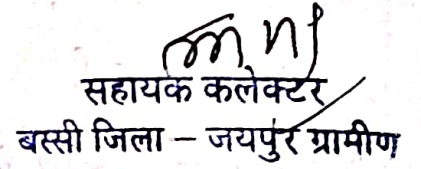 सहायक कलेक्टर
बस्सी जिला – जयपुर ग्रामीण